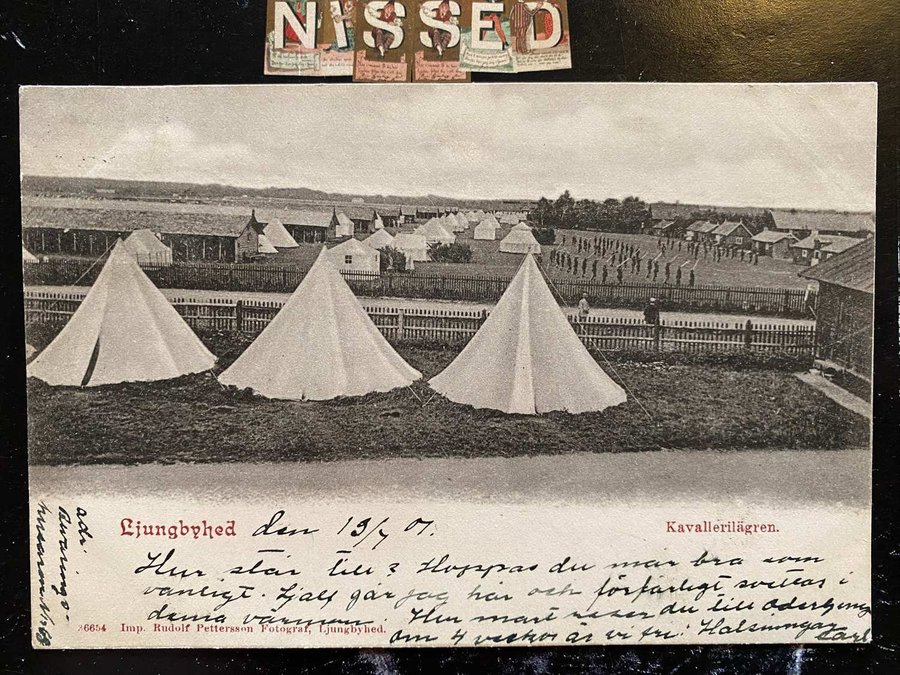 NISSED
Ljungbyhed den 13/7 01.
Kavallerilägren.
Hur står till? Hoppas du mår bra som
vanligt. Själf går jag här och förfärligt svettas i
denna värmen. Hur mårt reser du till
om 4 veckor är vi fri. Hälsningar Carl
36654 Imp. Rudolf Pettersson Fotograf, Ljungbyhed.
adr.
husaren No 68